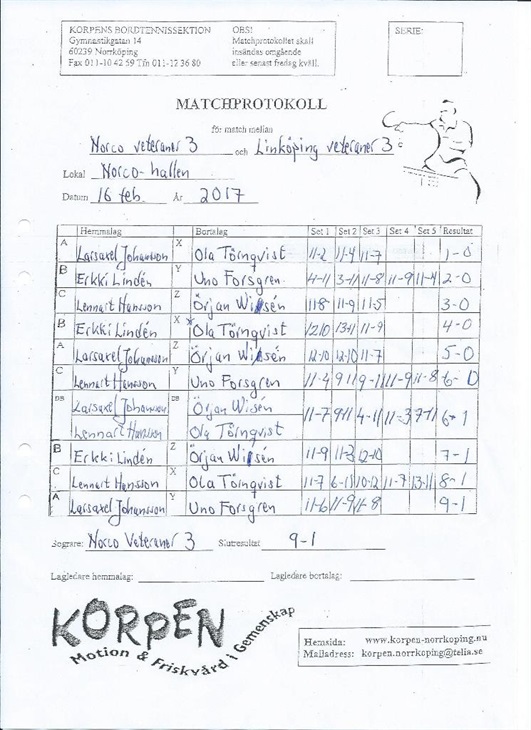 KORPENS BORDTENNISSEKTION
Gymnastikgatan 14
60239 Norrköping
Fax 011-10 42 59 Tfn 011-12 36 80
OBS!
Matchprotokollet skall
insändas omgående
eller senast fredag kväll.
SERIE:
MATCHPROTOKOLL
för match mellan
Norco veteraner 3 och Linköping veteraner 3
Lokal Norco-hallen
Datum 16 feb. År 2017
Hemmalag Bortalag Set 1 Set 2 Set 3 Set 4 Set 5 Resultat
A Larsaxel Johansson X Ola Törnqvist 11-2 11-4 11-7 1-0
B Erkki Lindén Y Uno Forsgren 4-11 3-11 11-8 11-9 11-4 2-0
C Lennart Hansson Z Örjan Wilsén 11-8 11-9 11-5 3-0
B Erkki Lindén X Ola Törnqvist 12-10 13-11 11-9 4-0
A Larsaxel Johansson Z Örjan Wilsén 12-10 12-10 11-7 5-0
C Lennart Hansson Y Uno Forsgren 11-4 9-11 9-11 11-9 11-8 6-0
DB Larsaxel Johansson DB Örjan Wilsén
Lennart Hansson Ola Törnqvist 11-7 9-11 4-11 11-3 7-11 6-1
B Erkki Lindén Z Örjan Wilsén 11-9 11-3 12-10 7-1
C Lennart Hansson X Ola Törnqvist 11-7 6-11 10-12 11-7 13-11 8-1
A Larsaxel Johansson Y Uno Forsgren 11-6 11-9 11-8 9-1
Segrare: Norco Veteraner 3 Slutresultat 9-1
Lagledare hemmalag: Lagledare bortalag:
KORPEN
Motion & Friskvård i Gemenskap
Hemsida: www.korpen-norrkoping.nu
Mailadress: korpen.norrkoping@telia.se